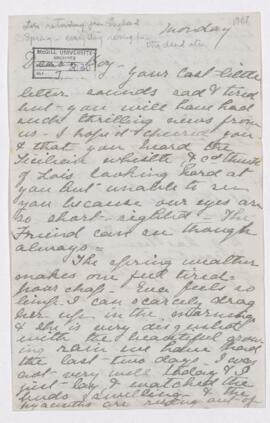 Lois returning from England 1906
Spring -
Monday
McGILL UNIVERSITY
ARCHIVES
ACC. NO.
REF. 1
Boy -
your last little
letter sounds sad & tired
but - you will have had
such thrilling news from
us - I hope it cheered you
& that you heard the
Sicilian whistle & cd think
of Lois looking hard at
you but unable to see
you because our eyes are
so short-sighted - The
Friend can see though
always =
The spring weather
makes one feel tired -
poor chap - Eva feels so
limp I can scarcely drag
her up in the mornings
& she is very disgusted
with the beautiful grow
ing rain we have had
the last two days - I was
not very well today & I
just lay & watched the
buds swelling - & the
hyacinths are rushing out of